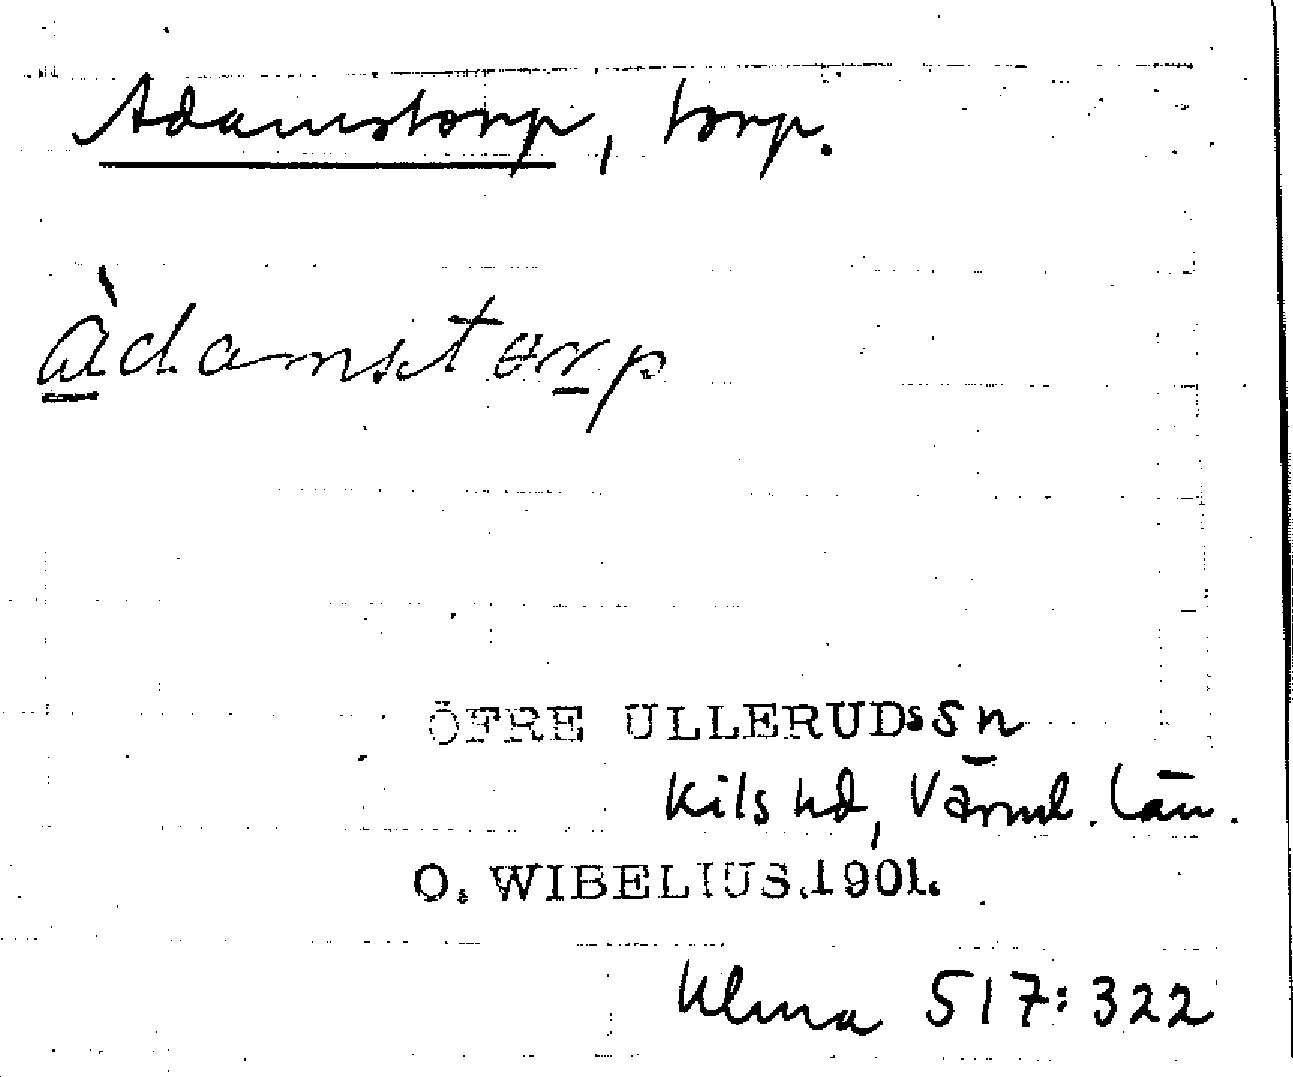 Adamstorp, torp.
àdamstɵrp
ÖFRE ULLERUDs sn
Kils hd, Värml. län.
O. WIBELIUS.1901.
Ulma 517:322